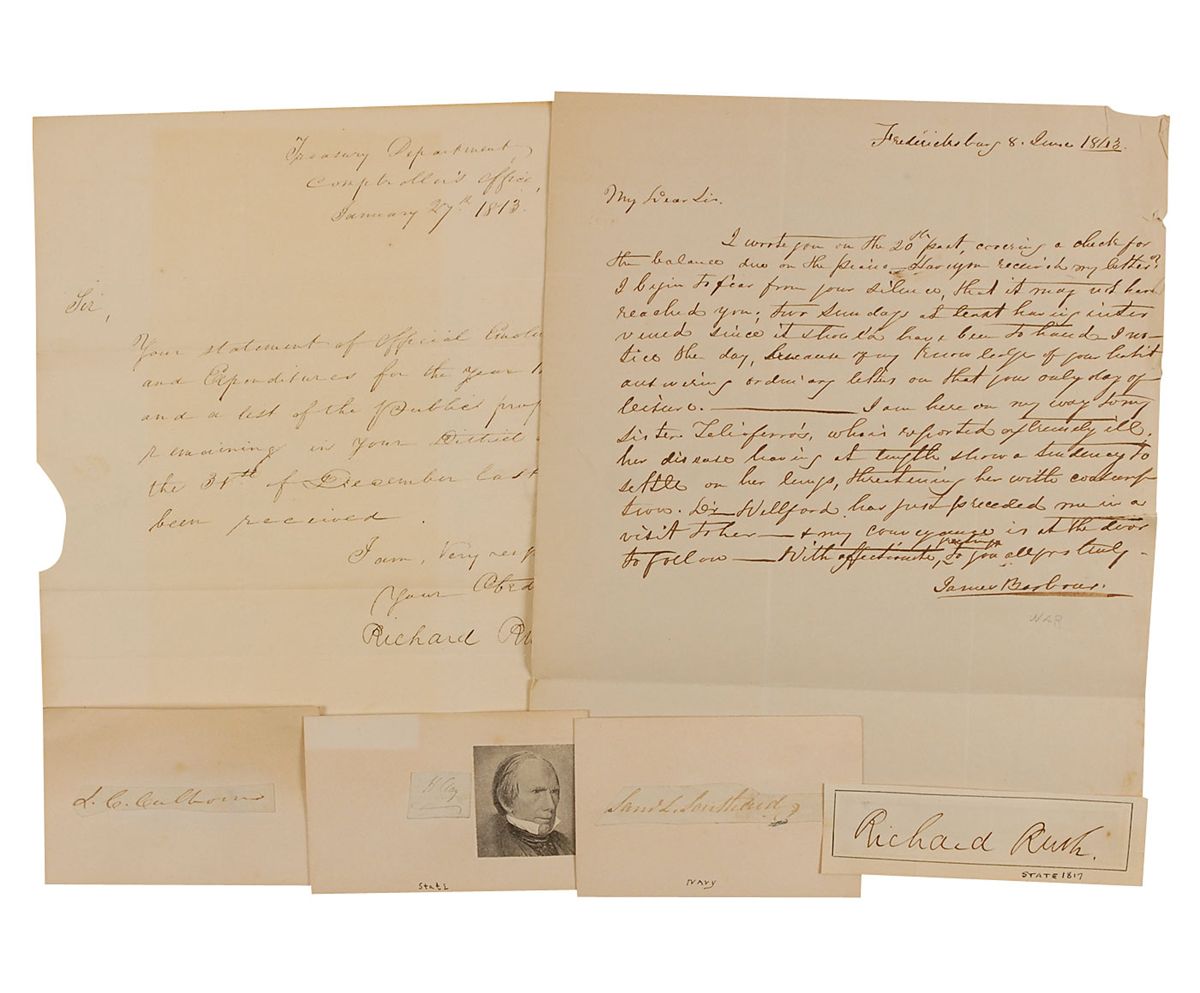 Treasury Department,
Comptroller's Office,
January 27th 1813.
Sir,
Your statement of Official Emolu
and Expenditures for the year 1
and a list of the Public prop
remaining in your District
the 31st of December last
been received.
I am, Very resp
Your Obed
Richard Ru
Fredericksburg 8. June 1843.
My Dear Sir.
I wrote you on the 20th past, covering a check for
the balance due on the piano. Have you received my letter?
I begin to fear from your silence, that it may not have
reached you; two Sundays at least having inter
vened since it should have been to hand. I no-
tice the day, because of my knowledge of your habit
answering ordinary letters on that your only day of
leisure. — I am here on my way to my
sister Taliaferro's, who is reported extremely ill,
her disease having at length shown a tendency to
settle on her lungs, threatening her with consump
tion. Dr Wellford has just preceded me in a
visit to her — & my conveyance is at the door
to follow — With affectionate greetings to you all yrs truly -
James Barbour.
WAR
J. C. Calhoun
H Clay
State
Saml L. Southard
Navy
Richard Rush.
STATE 1817